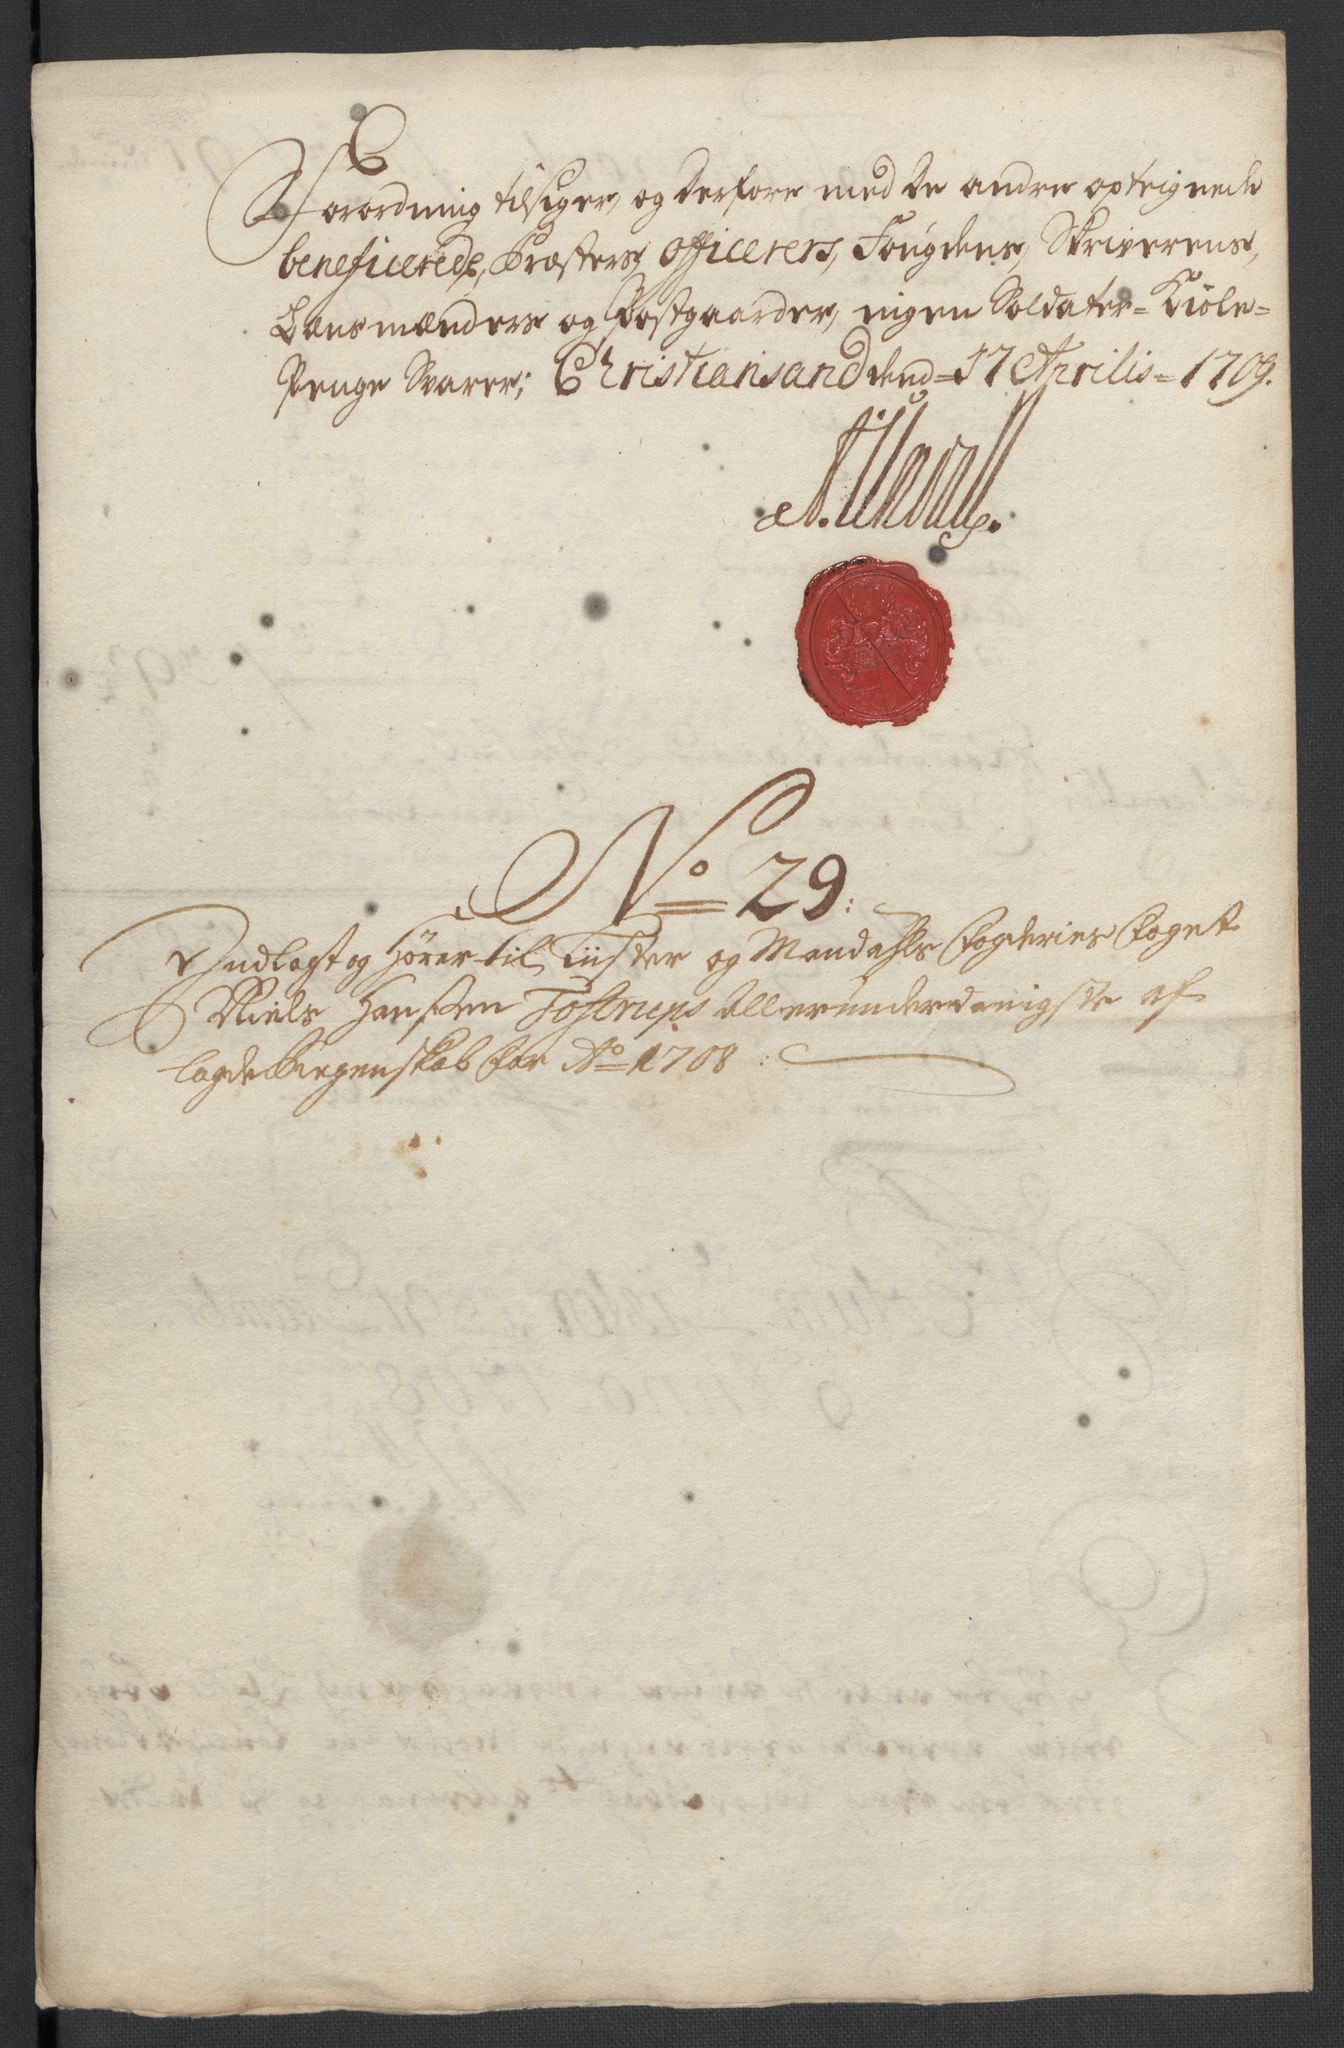 Forordning tilsiger, og derfore med de andre opteignede
beneficerede, Præsters, Officerers, Fougdens, Skriverens,
Lensmænders og Postgaarder, ingen Soldater= Kiole=
Penge Svarer; Christiansand dend= 17 Aprilis= 1709.
No= 29:
Indlagt og hører til Lister og Mandahls fogderies foget
Niels Hanssen Tostrups Allerunderdanigste af-
lagde Regenskab for Ao= 1708: